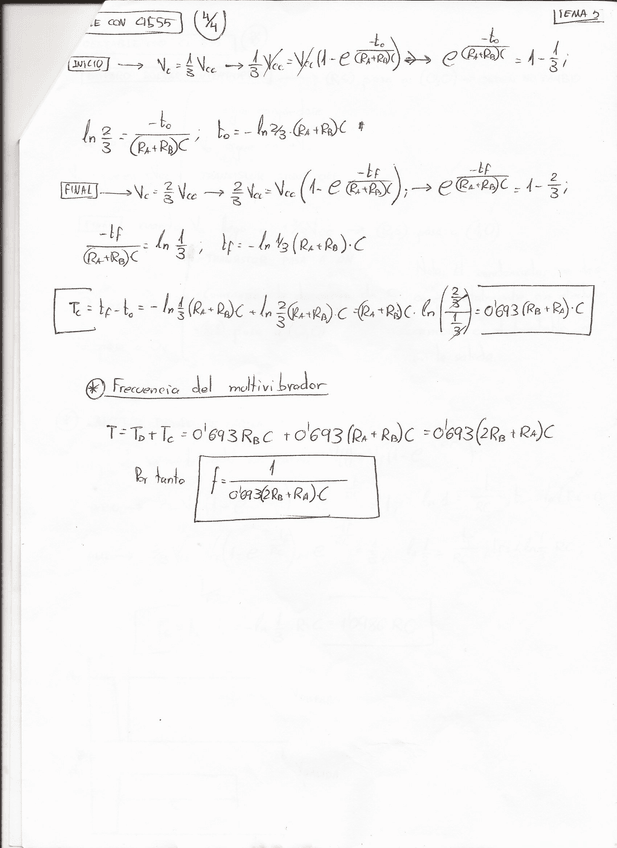 E CON CI555 4/4 TEMA 5
INICIO → Vc = 1/3 Vcc → 1/3 Vcc = Vcc (1 - e^(-t₀/((RA+RB)C))) → e^(-t₀/((RA+RB)C)) = 1 - 1/3;
ln 2/3 = -t₀/((RA+RB)C); t₀ = -ln 2/3·(RA+RB)C *
FINAL → Vc = 2/3 Vcc → 2/3 Vcc = Vcc (1 - e^(-tf/((RA+RB)C))); → e^(-tf/((RA+RB)C)) = 1 - 2/3;
-tf/((RA+RB)C) = ln 1/3; tf = -ln 1/3 (RA+RB)·C
Tc = tf - t₀ = -ln 1/3 (RA+RB)C + ln 2/3 (RA+RB)·C = (RA+RB)C · ln ((2/3)/(1/3)) = 0'693 (RB+RA)·C
* Frecuencia del multivibrador
T = TD + TC = 0'693 RB C + 0'693 (RA+RB)C = 0'693 (2RB+RA)C
Por tanto f = 1/(0'693(2RB+RA)·C)